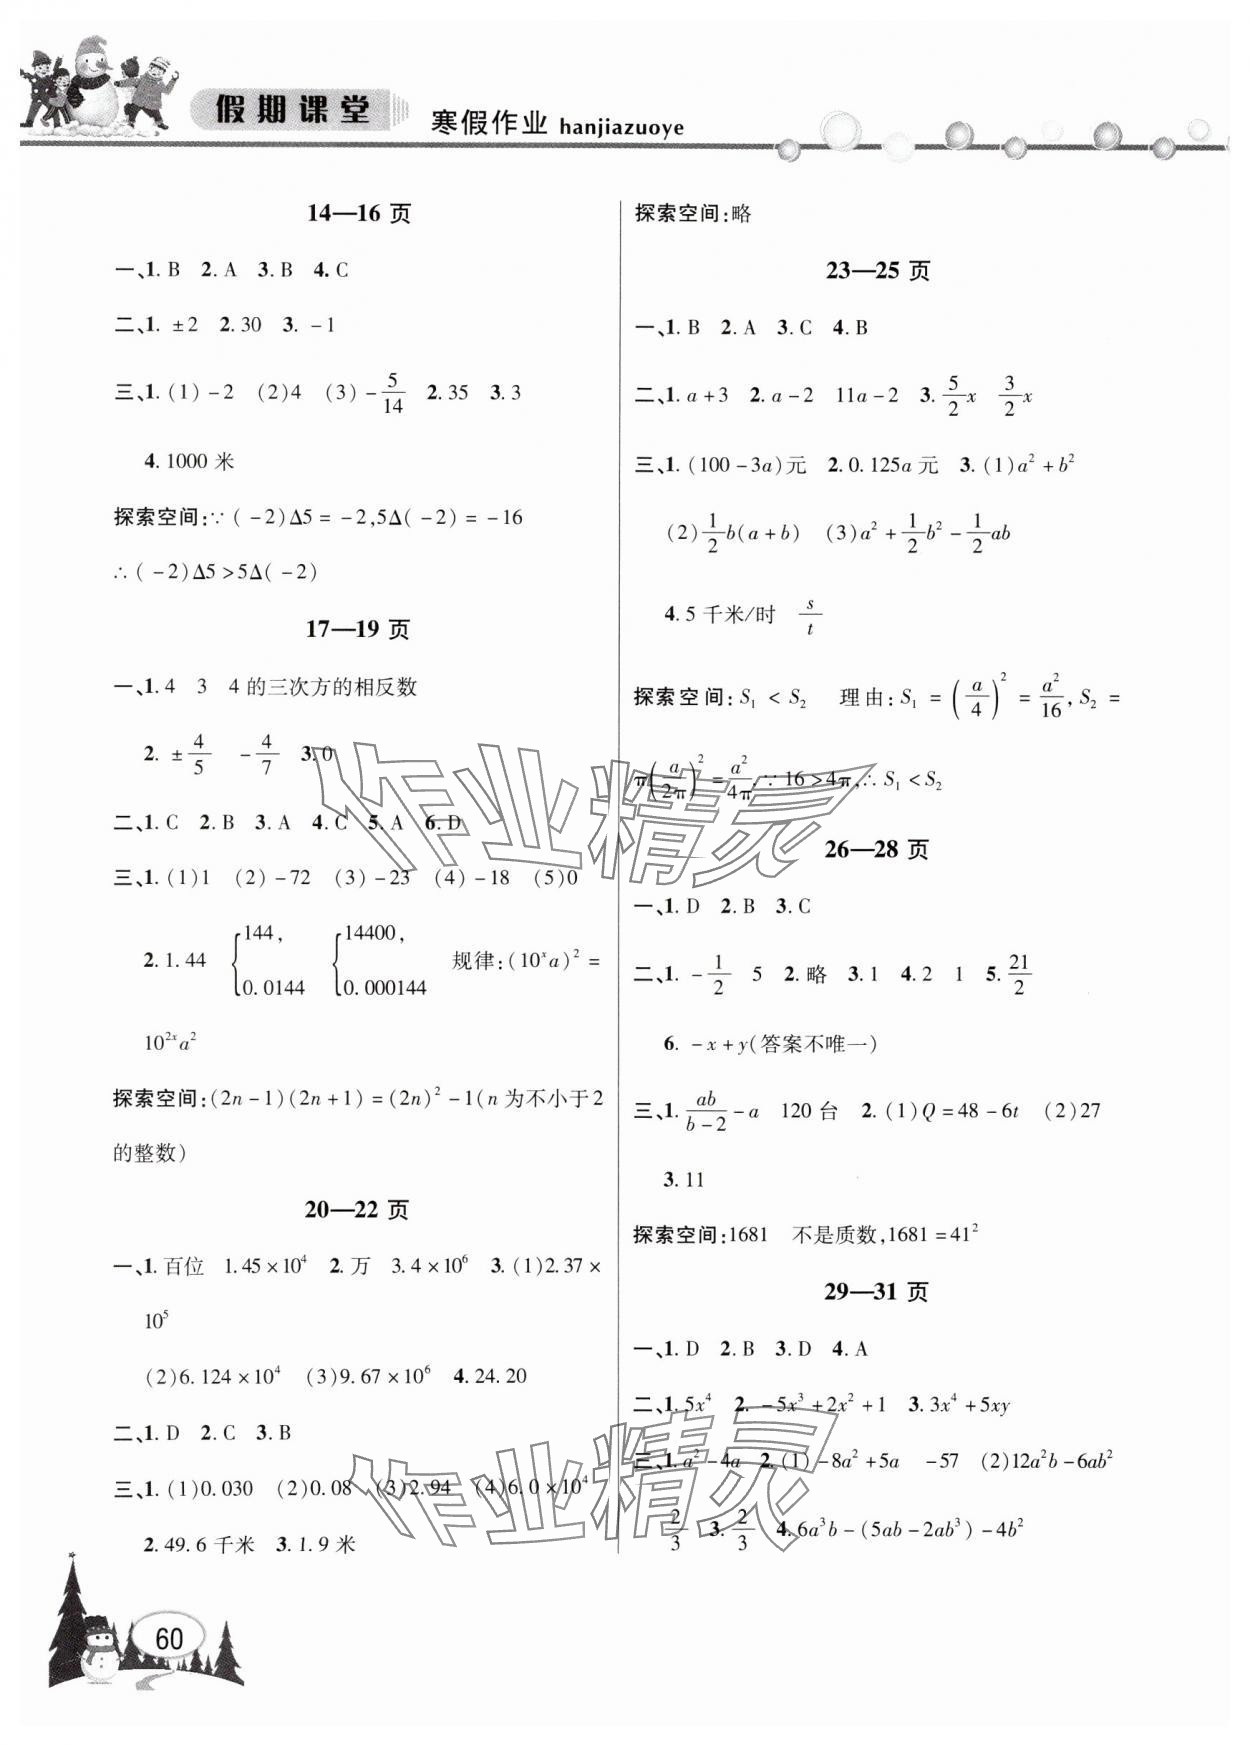 假期课堂
寒假作业 hanjiazuoye
14—16 页
一、1. B 2. A 3. B 4. C
二、1. ±2 2. 30 3. -1
三、1. (1) -2 (2)4 (3) -5/14 2. 35 3. 3
4. 1000 米
探索空间:∵ ( -2)Δ5 = -2,5Δ( -2) = -16
∴ ( -2)Δ5 > 5Δ( -2)
17—19 页
一、1. 4 3 4 的三次方的相反数
2. ±4/5 -4/7 3. 0
二、1. C 2. B 3. A 4. C 5. A 6. D
三、1. (1)1 (2) -72 (3) -23 (4) -18 (5)0
2. 1. 44 {144, 0. 0144 {14400, 0. 000144 规律:(10^x a)^2 =
10^{2x}a^2
探索空间:(2n-1)(2n+1) = (2n)^2 -1(n 为不小于 2
的整数)
20—22 页
一、1. 百位 1. 45×10^4 2. 万 3. 4×10^6 3. (1)2. 37×
10^5
(2)6. 124×10^4 (3)9. 67×10^6 4. 24. 20
二、1. D 2. C 3. B
三、1. (1)0. 030 (2)0. 08 (3)2. 94 (4)6. 0×10^4
2. 49. 6 千米 3. 1. 9 米
探索空间:略
23—25 页
一、1. B 2. A 3. C 4. B
二、1. a+3 2. a-2 11a-2 3. 5/2 x 3/2 x
三、1. (100-3a)元 2. 0. 125a 元 3. (1)a^2+b^2
(2)1/2 b(a+b) (3)a^2+1/2 b^2-1/2 ab
4. 5 千米/时 s/t
探索空间:S_1 < S_2 理由:S_1 = (a/4)^2 = a^2/16, S_2 =
π(a/2π)^2 = a^2/4π. ∵ 16 > 4π,∴ S_1 < S_2
26—28 页
一、1. D 2. B 3. C
二、1. -1/2 5 2. 略 3. 1 4. 2 1 5. 21/2
6. -x+y(答案不唯一)
三、1. ab/(b-2) -a 120 台 2. (1)Q=48-6t (2)27
3. 11
探索空间:1681 不是质数,1681=41^2
29—31 页
一、1. D 2. B 3. D 4. A
二、1. 5x^4 2. -5x^3+2x^2+1 3. 3x^4+5xy
三、1. a^2-4a 2. (1) -8a^2+5a -57 (2)12a^2b-6ab^2
2/3 3. 2/3 4. 6a^3b-(5ab-2ab^3)-4b^2
60
作业精灵
作业精灵